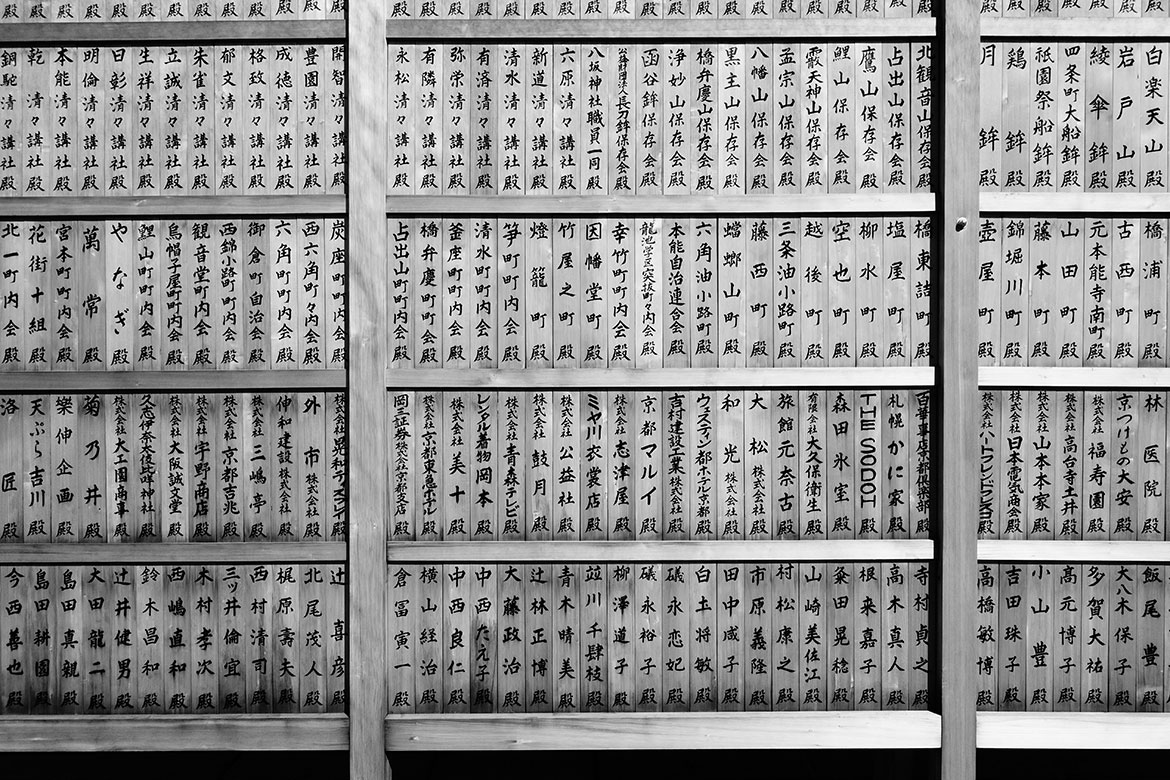 白楽天山殿
岩戸山殿
綾傘鉾殿
四条町大船鉾殿
祇園祭船鉾殿
鶏鉾殿
月鉾殿
北観音山保存会殿
占出山保存会殿
鷹山保存会殿
鯉山保存会殿
霰天神山保存会殿
孟宗山保存会殿
八幡山保存会殿
黒主山保存会殿
橋弁慶山保存会殿
浄妙山保存会殿
函谷鉾保存会殿
公益財団法人長刀鉾保存会殿
八坂神社職員一同殿
六原清々講社殿
新道清々講社殿
清水清々講社殿
有済清々講社殿
弥栄清々講社殿
有隣清々講社殿
永松清々講社殿
開智清々講社殿
豊園清々講社殿
成徳清々講社殿
格致清々講社殿
郁文清々講社殿
朱雀清々講社殿
立誠清々講社殿
生祥清々講社殿
日彰清々講社殿
明倫清々講社殿
本能清々講社殿
乾清々講社殿
銅駝清々講社殿
橋浦町殿
古西町殿
元本能寺南町殿
山田町殿
藤本町殿
錦堀川町殿
壺屋町殿
橋東詰町殿
塩屋町殿
柳水町殿
空也町殿
越後町殿
三条油小路町殿
藤西町殿
蟷螂山町殿
六角油小路町殿
本能自治連合会殿
龍池学区突抜町々内会殿
幸竹町町内会殿
因幡堂町殿
竹屋之町殿
燈籠町殿
笋町町内会殿
清水町町内会殿
釜座町町内会殿
橋弁慶町町会殿
占出山町町内会殿
炭座町町内会殿
西六角町々内会殿
六角町町内会殿
御倉町自治会殿
西錦小路町町内会殿
観音堂町内会殿
烏帽子屋町町内会殿
鯉山町町内会殿
やなぎ殿
萬常殿
宮本町町内会殿
花街十組殿
北一町内会殿
林医院殿
京つけもの大安殿
株式会社福寿園殿
株式会社高台寺土井殿
株式会社山本本家殿
株式会社日本電気商会殿
株式会社殿
百華重店京都倶楽部殿
札幌かに家殿
THE SODOH殿
森田氷室殿
有限会社大久保衛生殿
旅館元奈古殿
大松株式会社殿
和光株式会社殿
ウェスティン都ホテル京都殿
吉村建設工業株式会社殿
京都マルイ殿
株式会社志津屋殿
ミヤ川衣裳店殿
株式会社公益社殿
株式会社鼓月殿
株式会社青森テレビ殿
レンタル着物岡本殿
株式会社美十殿
株式会社京都東急ホテル殿
岡三証券株式会社京都支店殿
株式会社晃和ディスプレイ殿
外市株式会社殿
伸和建設株式会社殿
株式会社三嶋亭殿
株式会社京都吉兆殿
株式会社宇野商店殿
株式会社大阪誠文堂殿
久志伊奈太伎比咩神社殿
株式会社大工園商事殿
菊乃井殿
樂伸企画殿
天ぷら吉川殿
洛匠殿
飯尾豊殿
大八木保子殿
多賀大祐殿
高元博子殿
小山豊殿
吉田珠子殿
高橋敏博殿
寺村貞之殿
高木真人殿
根来嘉子殿
粂田晃稔殿
山崎美佐江殿
村松康之殿
市原義隆殿
田中成子殿
白土将敏殿
礒永恋妃殿
礒永裕子殿
柳澤道子殿
竝川千肆枝殿
青木晴美殿
辻林正博殿
大藤政治殿
中西たえ子殿
中西良仁殿
横山経治殿
倉冨寅一殿
辻喜彦殿
北尾茂人殿
梶原壽夫殿
西村清司殿
三ッ井倫宜殿
木村孝次殿
西嶋直和殿
鈴木昌和殿
辻井健男殿
大田龍二殿
島田真親殿
島田耕園殿
今西善也殿